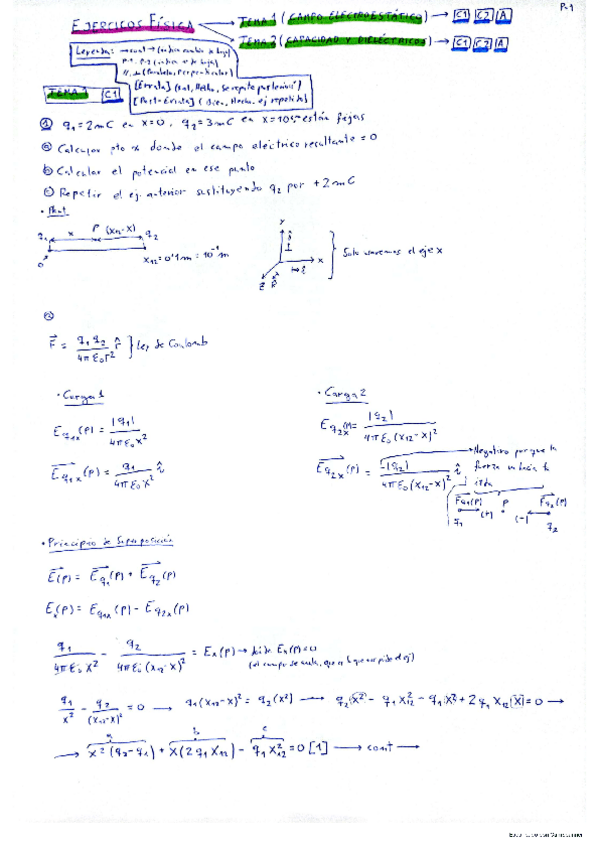 P-1
EJERCICOS FÍSICA → TEMA 1 (CAMPO ELECTROESTÁTICO) → C1 C2 A
→ TEMA 2 (CAPACIDAD Y DIELÉCTRICOS) → C1 C2 A
Leyenda: → cont →
P-1, P-2
//, ⊥ (Paralela, Perpendicular)
[Errata]
[Post-Errata] (Bien, Hecho, ej repetido)
TEMA 1 C1
① q₁ = 2mC en x=0, q₂ = 3mC en x=10 están fijas
ⓐ Calcular pto x donde el campo eléctrico resultante = 0
ⓑ Calcular el potencial en ese punto
ⓒ Repetir el ej. anterior sustituyendo q₂ por +2mC
q₁ x P (x₁₂-x) q₂
0 x₁₂ = 0'1m = 10⁻¹m
y x z
Solo usaremos el eje x
ⓐ
F⃗ = q₁q₂/(4πε₀r²) r̂ } Ley de Coulomb
· Carga 1
· Carga 2
E_q₁x(P) = |q₁|/(4πε₀x²)
E_q₂x(P) = |q₂|/(4πε₀(x₁₂-x)²)
E⃗_q₁x(P) = q₁/(4πε₀x²) î
E⃗_q₂x(P) = -|q₂|/(4πε₀(x₁₂-x)²) î
Negativo porque la fuerza va hacia la izda
F⃗q₁(P) P F⃗q₂(P)
q₁ (+) (-) q₂
· Principio de Superposición
E⃗(P) = E⃗q₁(P) + E⃗q₂(P)
Eₓ(P) = Eq₁x(P) - Eq₂x(P)
q₁/(4πε₀x²) - q₂/(4πε₀(x₁₂-x)²) = Eₓ(P) → donde Eₓ(P)=0
q₁/x² - q₂/(x₁₂-x)² = 0 → q₁(x₁₂-x)² = q₂(x²) → q₂x² - q₁x₁₂² - q₁x² + 2q₁x₁₂x = 0 →
a b c
→ x²(q₂-q₁) + x(2q₁x₁₂) - q₁x₁₂² = 0 [1] → cont →